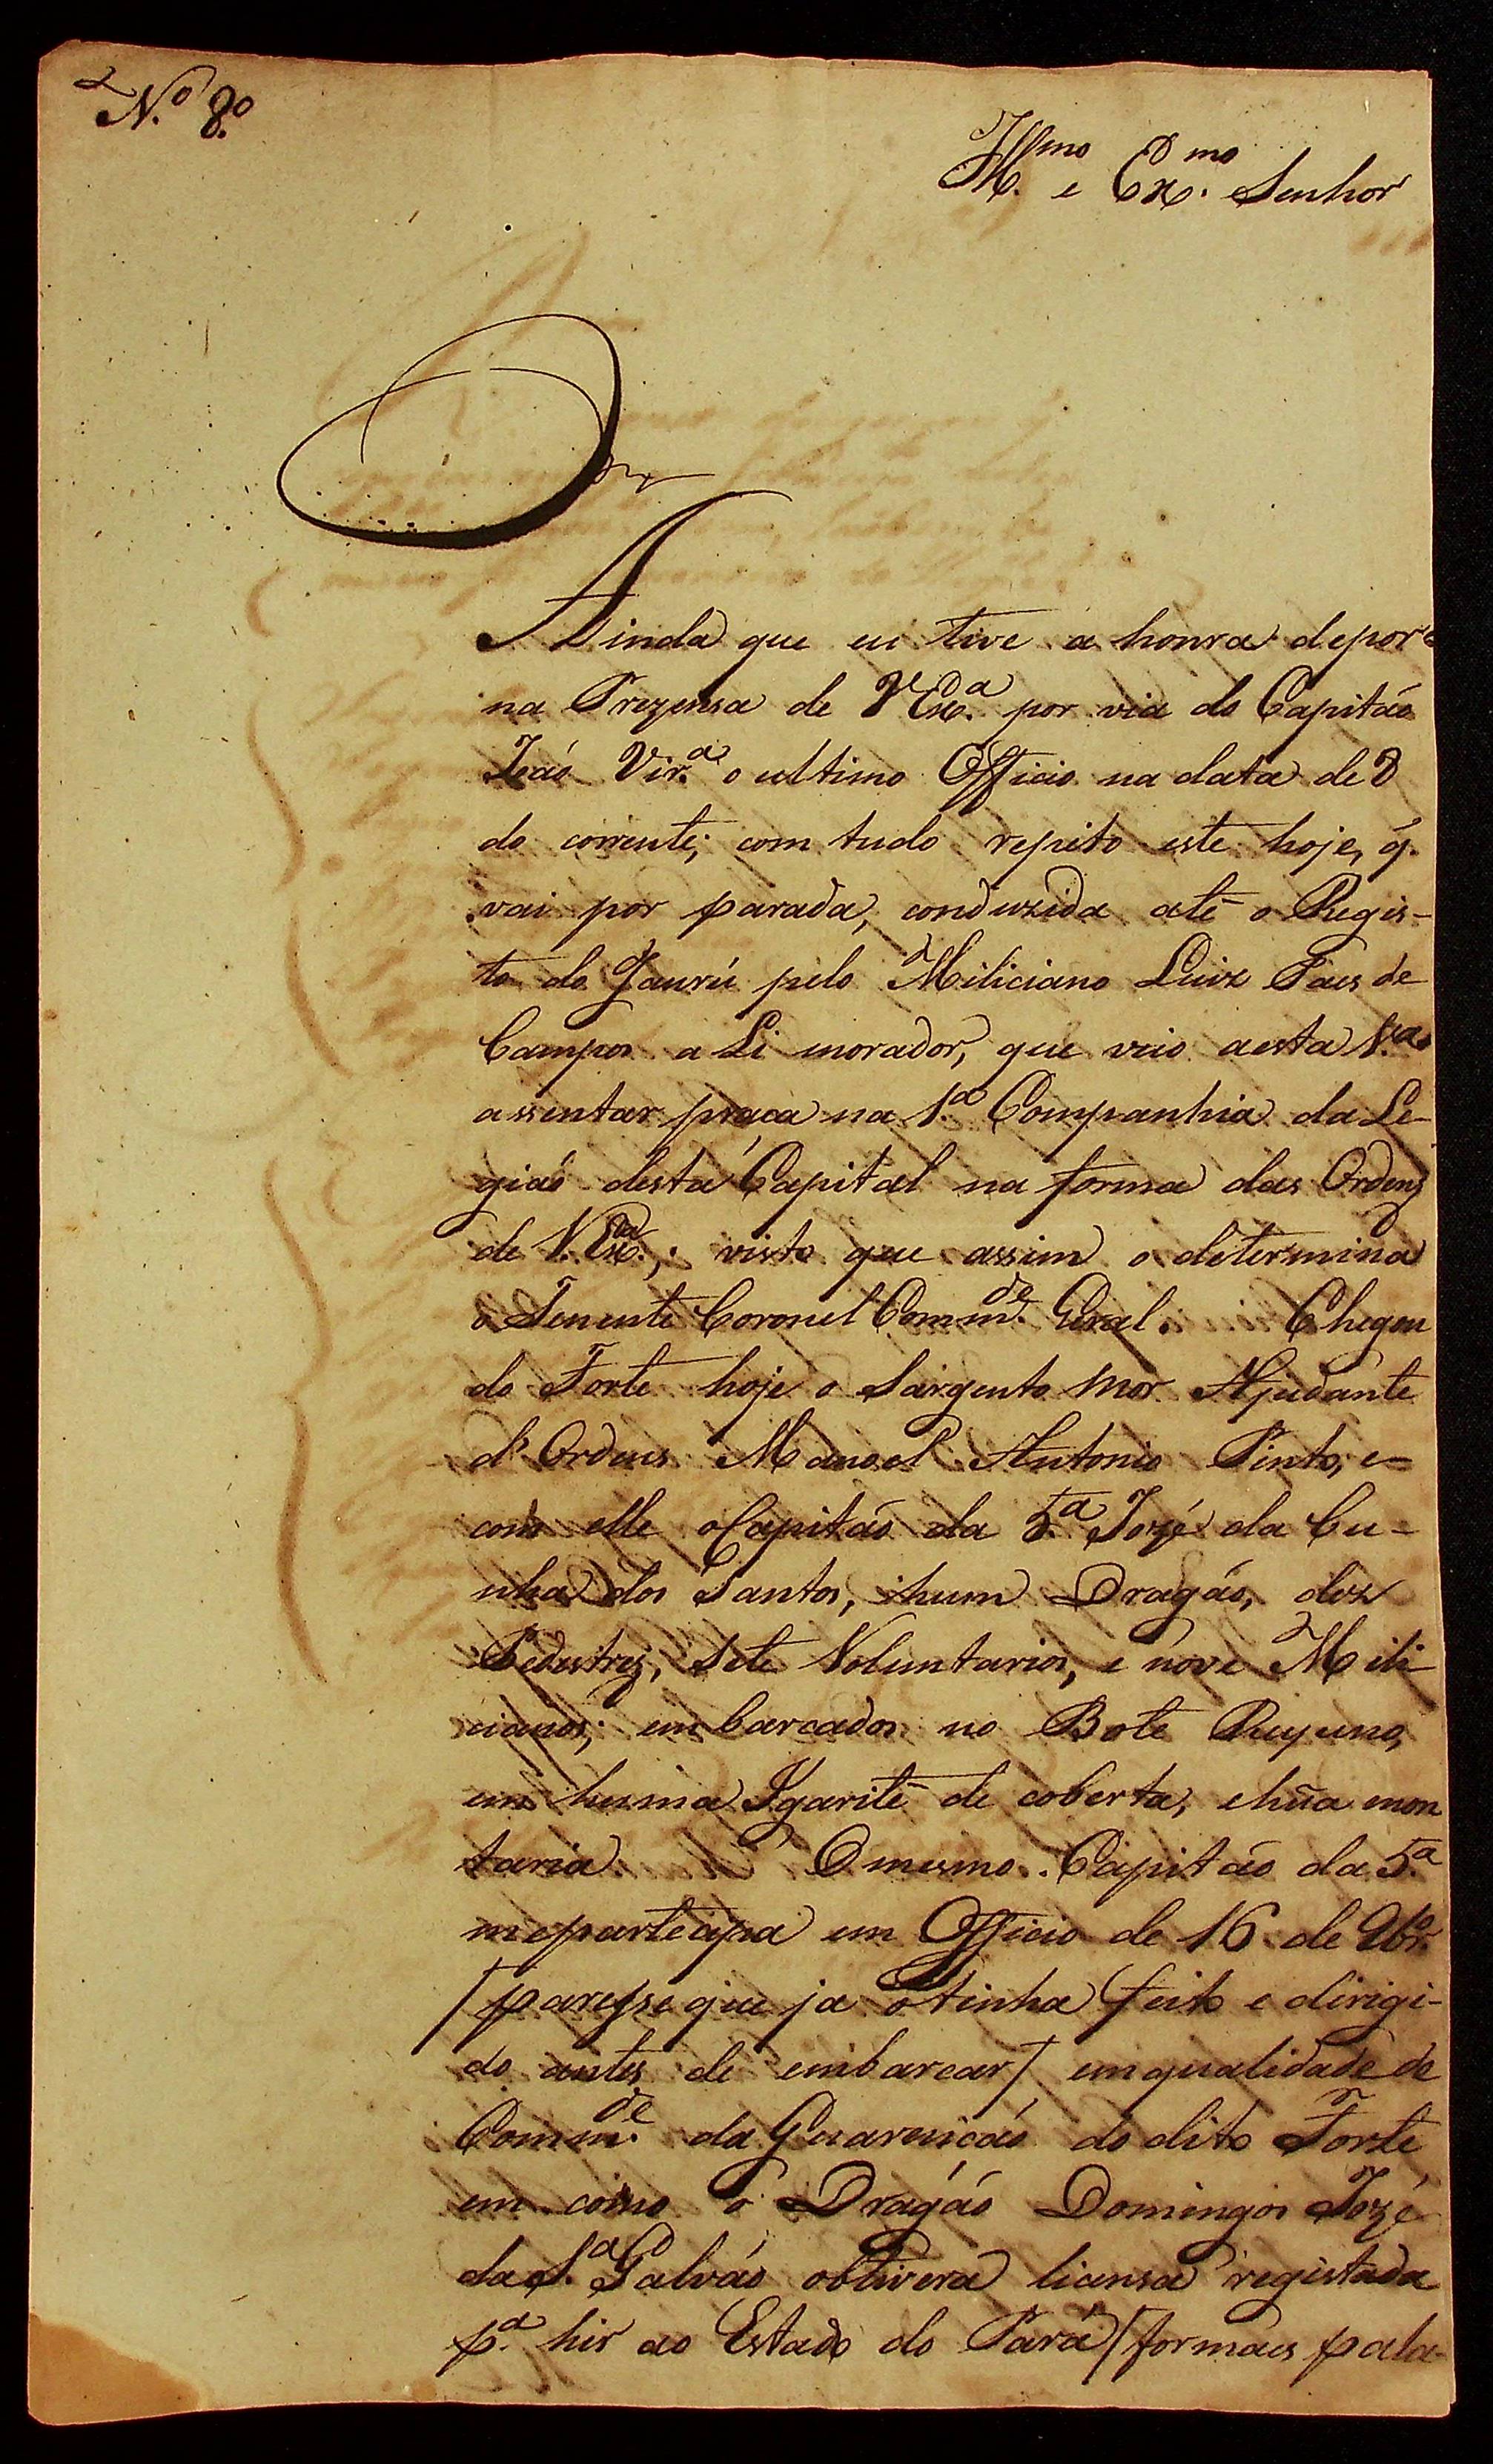 N.º 8.º
Ill.mo e Ex.mo Senhor
Ainda que eu tive a honra depor
na Prezensa de VEx.ª por via do Capitáo
Joáo Vir.ª o ultimo Officio na data de 8
do corrente; com tudo repito este hoje, q̃.
vai por parada, conduzida até o Regis-
to do Jaurú pelo Miliciano Luiz Paes de
Campos a Li morador, que veio aesta V.ª
assentar praça na 1.ª Companhia da Le-
giáo desta Capital na forma das Ordens
de V.Ex.ª, visto que assim o determina
o Tenente Coronel Comm.de Geral. Chegou
do Forte hoje o Sargento Mor Ajudante
d'Ordens Manoel Antonio Pinto, e=
com elle oCapitáo da 5.ª Jozé da Cu=
nha dos Santos, hum Dragáo, dez
Pedestres, Sete Voluntarios, e nove Mili-
cianos; embarcados no Bote
em huma Ygarité de coberta, ehũa mon
taria. Omesmo Capitáo da 5.ª
meparteçipa em Officio de 16 de 9br.º
/paresse que ja otinha feito e dirigi-
do antes de embarcar/ emqualidade de
Comm.de da Guarniçáo do dito Forte
em como o Dragáo Domingos Jozé
daS.ª Galváo obtivera licensa registada
p.ª hir ao Estado do Pará /formaes pala-